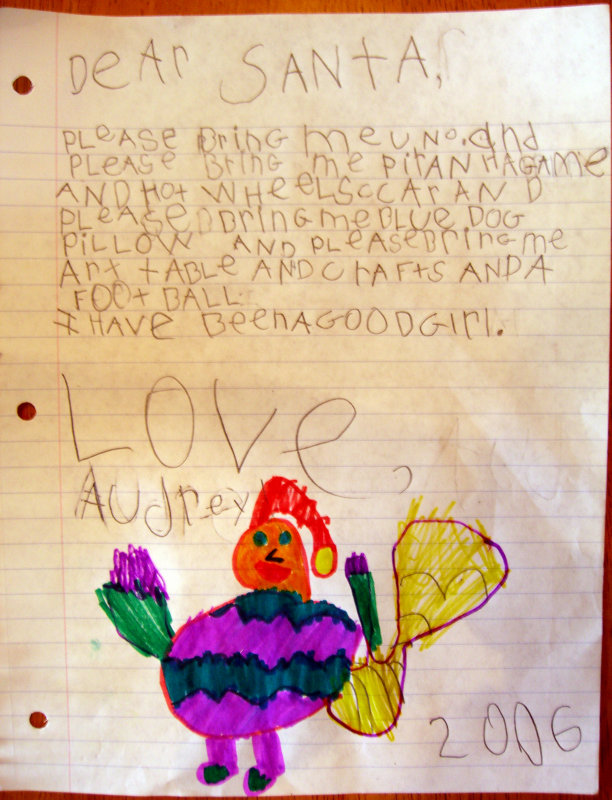 Dear SANtA,
PLeASe Bring me UNO. And
PLeASe Bring me PirANHAgAme
AND Hot WHeelSccAr AN D
PLeASe BBring me BLUe DOG
PiLLOW AND PLeASeBring me
Art tABLe AND CrAftS ANDA
FOOt BALL
I HAVe BeenAGOODGirl.
LOVe,
AUdrey
2006